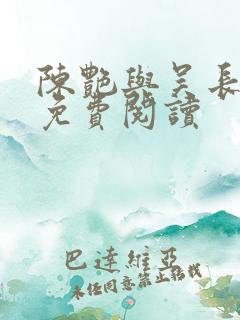 陳艷與吳長
免費閱讀
巴達維亞
未经同意禁止转载